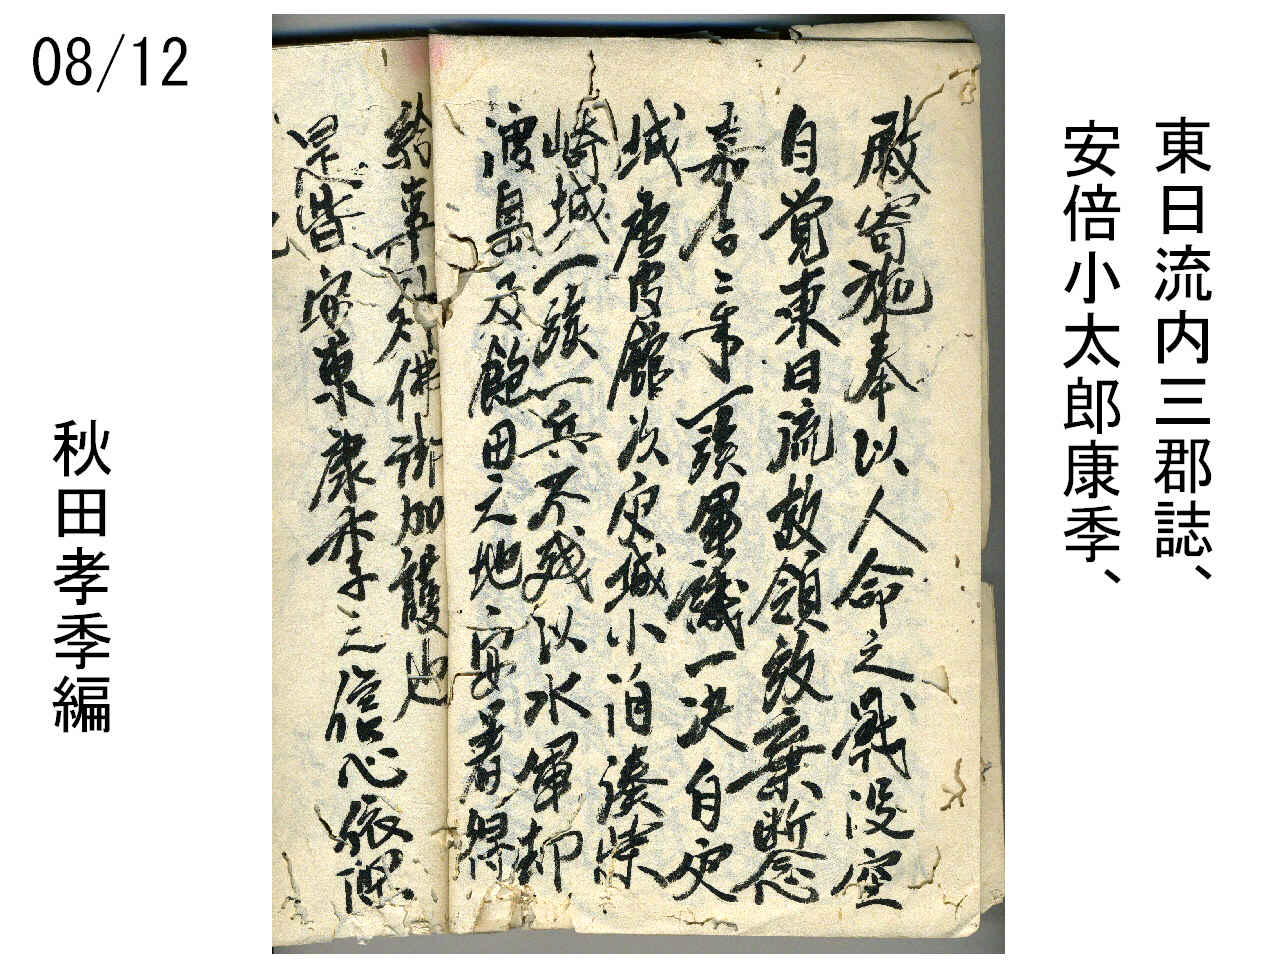 08/12
東日流内三郡誌、
安倍小太郎康季、
殿寄施奉以人命之戦没空
自覚東日流故領放棄断念
嘉吉三年一族軍議一決自
城唐皮館次 城小泊湊柴
崎城一族一兵不残以水軍却
渡島及飽田之地安着得
給事 神佛御加護也
是皆安東康季之信心依
秋田孝季編